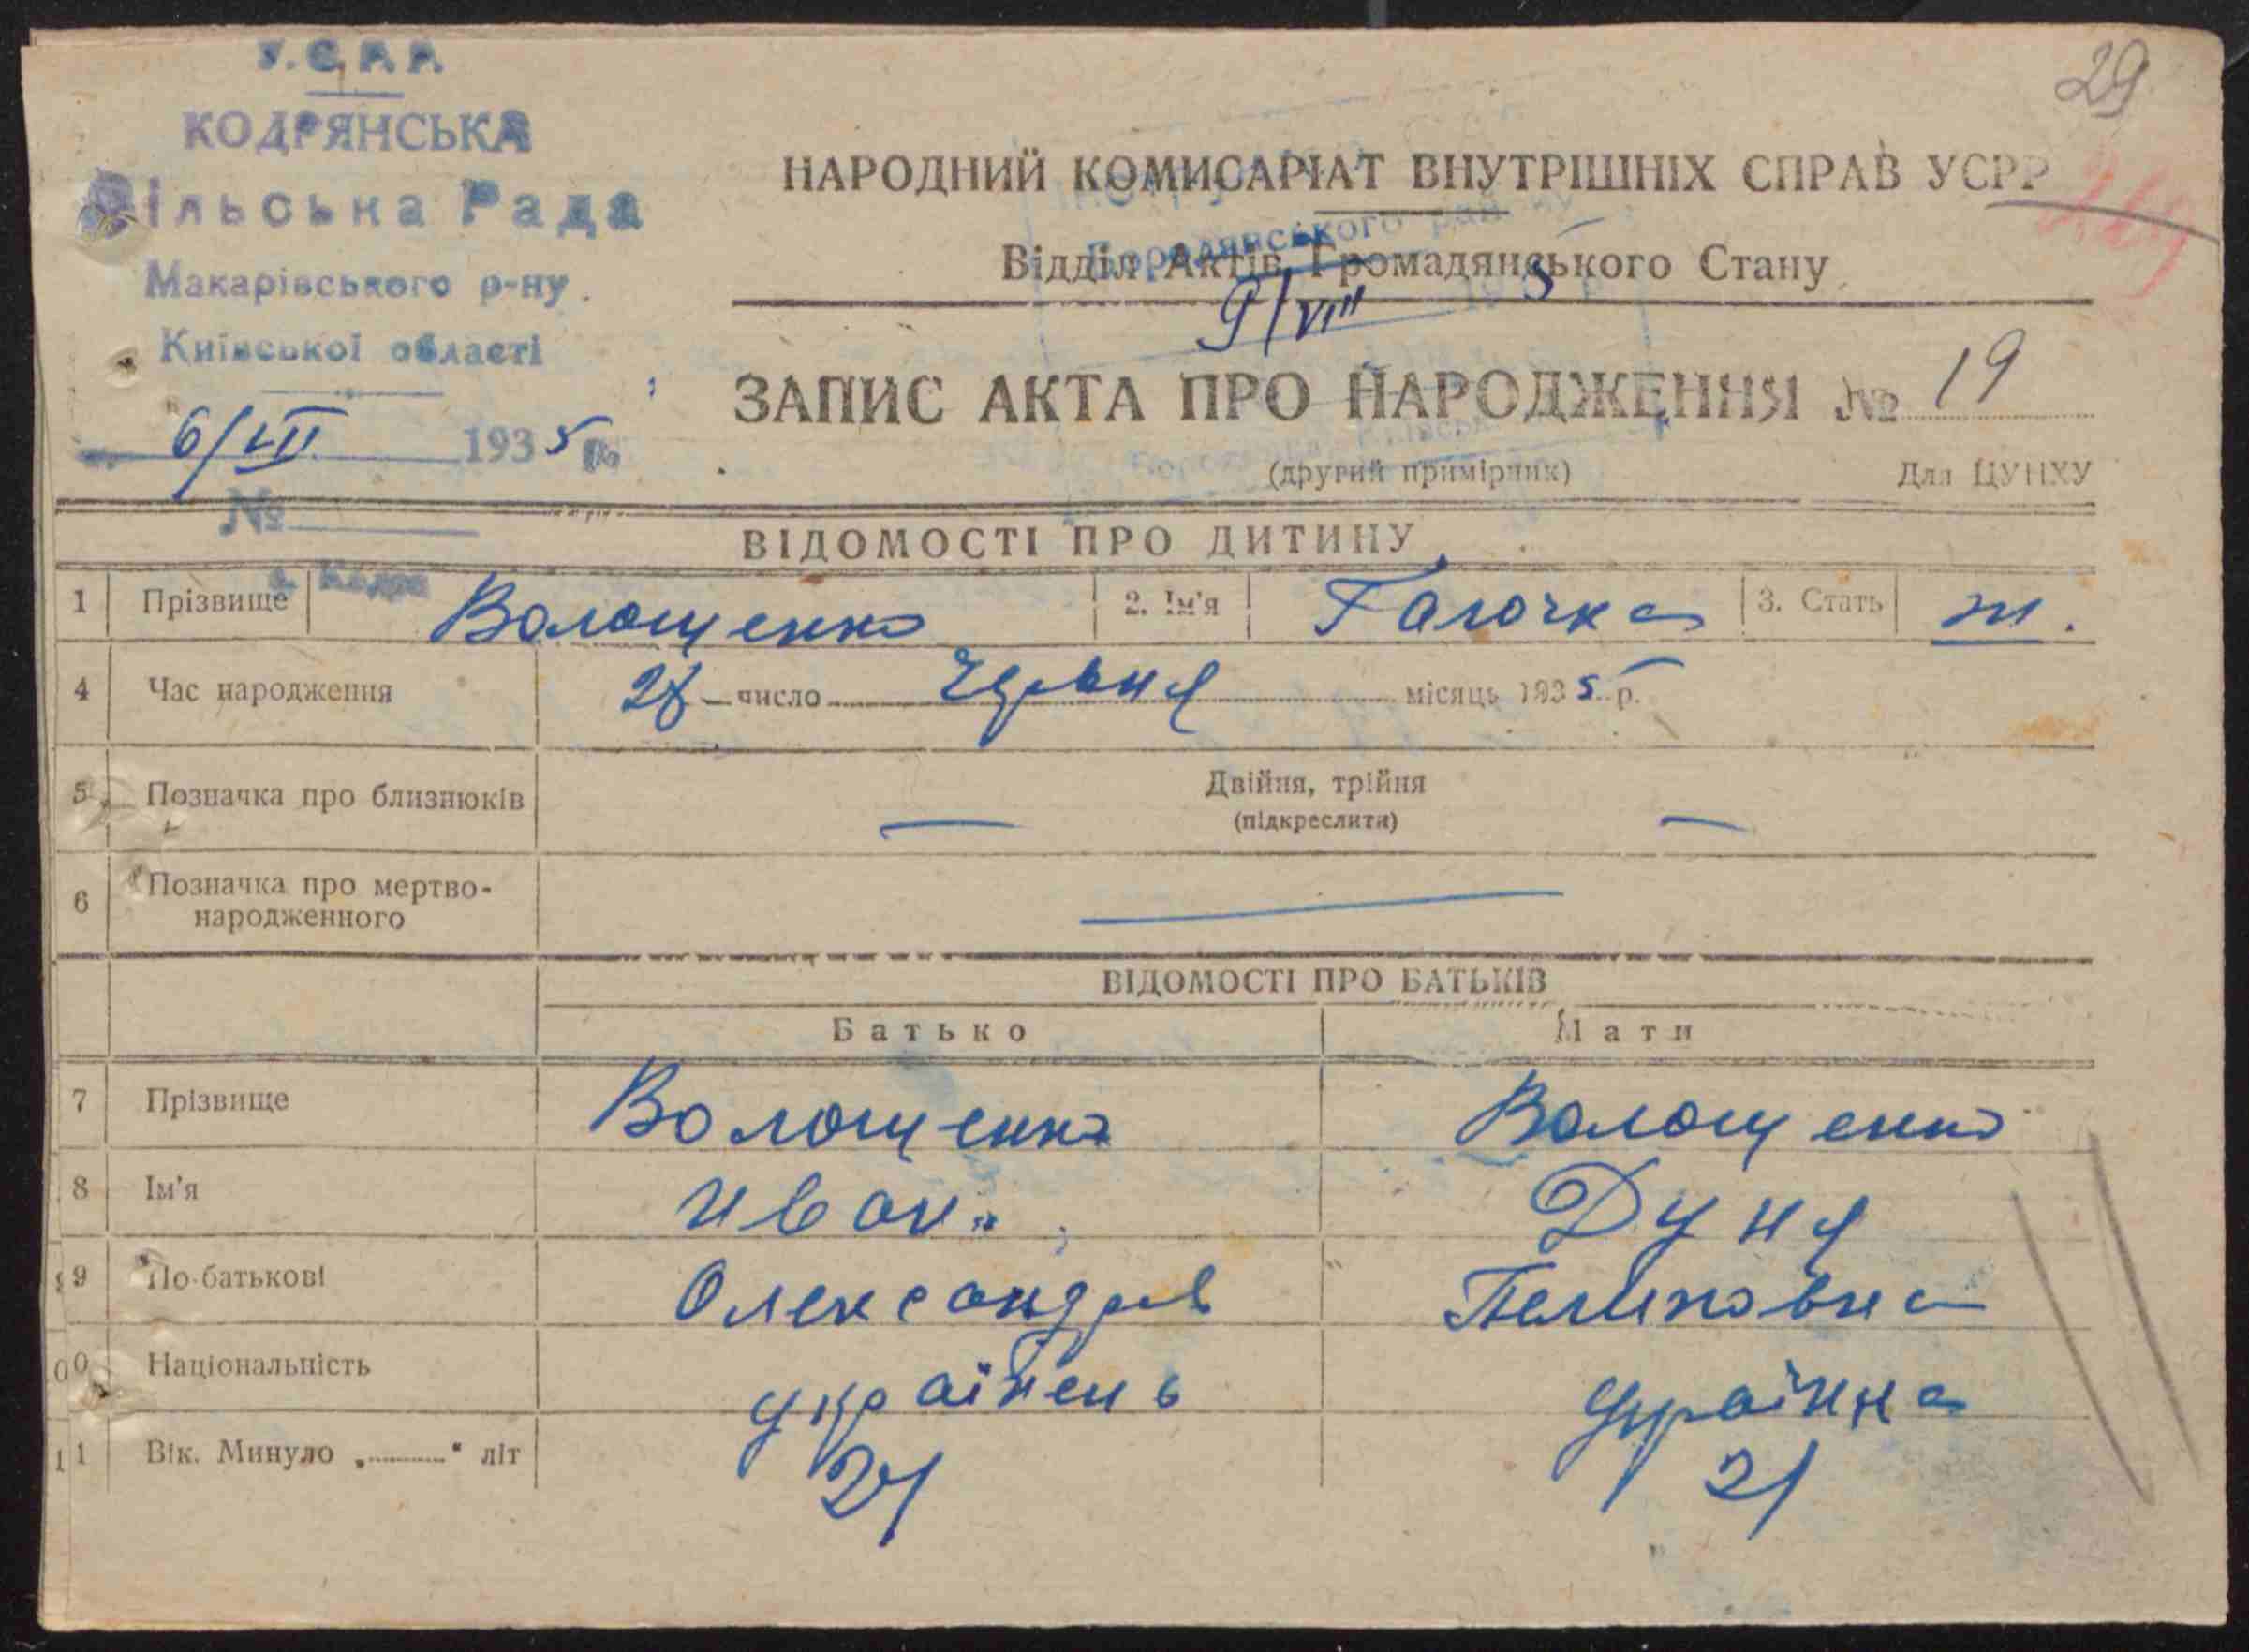 У.С.Р.Р.
КОДРЯНСЬКА
Сільська Рада
Макарівського р-ну
Київської області
6/VII 1935 р.
№
с. Кодра
29
НАРОДНИЙ КОМИСАРІАТ ВНУТРІШНІХ СПРАВ УСРР
Бородянського
Відділ Актів Громадянського Стану
9/VIII 5
ЗАПИС АКТА ПРО НАРОДЖЕННЯ № 19
(другий примірник) Для ЦУНХУ
ВІДОМОСТІ ПРО ДИТИНУ
1 Прізвище Волощенко 2. Ім'я Галочка 3. Стать ж.
4 Час народження 28 число Червня місяць 1935 р.
5 Позначка про близнюків Двійня, трійня
(підкреслити)
6 Позначка про мертво-
народженного
ВІДОМОСТІ ПРО БАТЬКІВ
Батько Мати
7 Прізвище Волощенко Волощенко
8 Ім'я Иван Дуня
9 По-батькові Олександров Пелиповна
Національність українець українка
11 Вік. Минуло „ “ літ 24 21